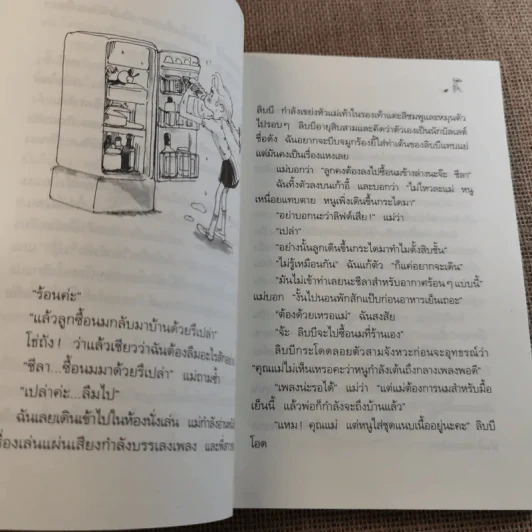 "ร้อนค่ะ"
"แล้วลูกซื้อนมกลับมาบ้านด้วยรึเปล่า"
โธ่ถัง! ว่าแล้วเชียวว่าฉันต้องลืมอะไรสัก
"ชีลา...ซื้อนมมาด้วยรึเปล่า" แม่ถามซ้ำ
"เปล่าค่ะ...ลืมไป"
ฉันเลยเดินเข้าไปในห้องนั่งเล่น แม่กำลังอ่าน
เครื่องเล่นแผ่นเสียงกำลังบรรเลงเพลง และพี่สาว
ลิบบี กำลังเขย่งหัวแม่เท้าในรองเท้าแตะสีชมพูและหมุนตัว
ไปรอบๆ ลิบบีอายุสิบสามและคิดว่าตัวเองเป็นนักบัลเลต์
ชื่อดัง ฉันอยากจะบีบจมูกร้องยี้ใส่ท่าเต้นของลิบบีแทบแย่
แต่มันคงเป็นเรื่องแหงเลย
แม่บอกว่า "ลูกคงต้องลงไปซื้อนมข้างล่างนะจ๊ะ ชีลา"
ฉันทิ้งตัวลงบนเก้าอี้ และบอกว่า "ไม่ไหวละแม่ หนู
เหนื่อยแทบตาย หนูเพิ่งเดินขึ้นกระไดมา"
"อย่าบอกนะว่าลิฟต์เสีย!" แม่ว่า
"เปล่า"
"อย่างนั้นลูกเดินขึ้นกระไดมาทำไมตั้งสิบชั้น"
"ไม่รู้เหมือนกัน" ฉันแก้ตัว "ก็แค่อยากจะเดิน"
"มันไม่เข้าท่าเลยนะชีลาสำหรับอากาศร้อนๆแบบนี้"
แม่บอก "งั้นไปนอนพักสักแป๊บก่อนอาหารเย็นเถอะ"
"ต้องด้วยเหรอแม่" ฉันสงสัย
"จ้ะ ลิบบีจะไปซื้อนมที่ร้านเอง"
ลิบบีกระโดดลอยตัวสามจังหวะก่อนจะอุทธรณ์ว่า
"คุณแม่ไม่เห็นเหรอคะว่าหนูกำลังเต้นถึงกลางเพลงพอดี"
"เพลงน่ะรอได้" แม่ว่า "แต่แม่ต้องการนมสำหรับมื้อ
เย็นนี้ แล้วพ่อก็กำลังจะถึงบ้านแล้ว"
"แหม! คุณแม่ แต่หนูใส่ชุดแนบเนื้ออยู่นะคะ" ลิบบี
โอด